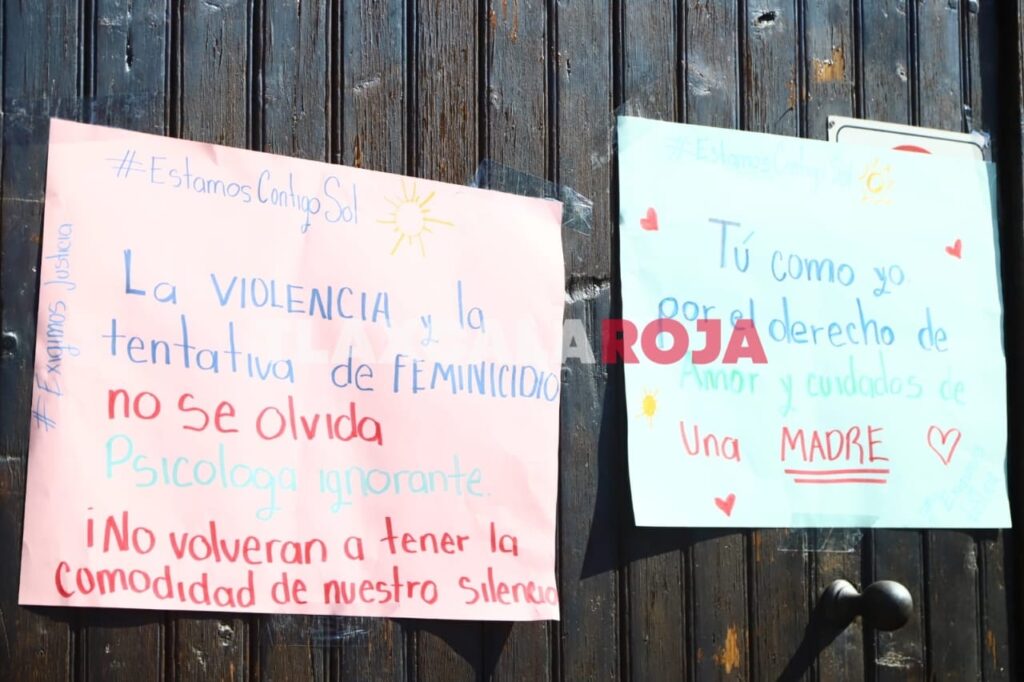 #EstamosContigoSol
#Exigimos Justicia
La VIOLENCIA y la
tentativa de FEMINICIDIO
no se olvida
Psicologa ignorante.
¡No volveran a tener la
comodidad de nuestro silencio
#EstamosContigoSol
Tú como yo
por el derecho de
Amor y cuidados de
Una MADRE
#Exigimos
Justicia
TLAXCALAROJA